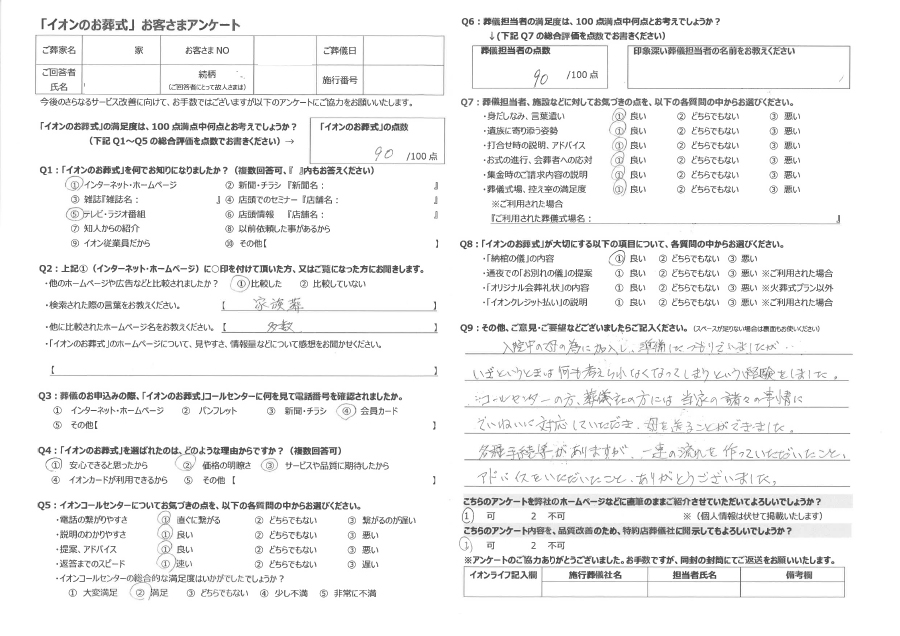 「イオンのお葬式」お客さまアンケート
ご葬家名 家 お客さまNO ご葬儀日
ご回答者氏名 続柄 (ご回答者にとって故人さまは) 施行番号
今後のさらなるサービス改善に向けて、お手数ではございますが以下のアンケートにご協力をお願いいたします。
「イオンのお葬式」の満足度は、100点満点中何点とお考えでしょうか？
（下記Q1～Q5の総合評価を点数でお書きください）→
「イオンのお葬式」の点数
90 /100点
Q1：「イオンのお葬式」を何でお知りになりましたか？（複数回答可、『 』内もお答えください）
① インターネット・ホームページ ② 新聞・チラシ『新聞名： 』
③ 雑誌『雑誌名： 』 ④ 店頭でのセミナー『店舗名： 』
⑤ テレビ・ラジオ番組 ⑥ 店頭情報 『店舗名： 』
⑦ 知人からの紹介 ⑧ 以前依頼した事があるから
⑨ イオン従業員だから ⑩ その他【 】
Q2：上記①（インターネット・ホームページ）に○印を付けて頂いた方、又はご覧になった方にお聞きします。
・他のホームページや広告などと比較されましたか？ ① 比較した ② 比較していない
・検索された際の言葉をお教えください。 【 家族葬 】
・他に比較されたホームページ名をお教えください。【 多数 】
・「イオンのお葬式」のホームページについて、見やすさ、情報量などについて感想をお聞かせください。
【 】
Q3：葬儀のお申込みの際、「イオンのお葬式」コールセンターに何を見て電話番号を確認されましたか。
① インターネット・ホームページ ② パンフレット ③ 新聞・チラシ ④ 会員カード
⑤ その他【 】
Q4：「イオンのお葬式」を選ばれたのは、どのような理由からですか？（複数回答可）
① 安心できると思ったから ② 価格の明瞭さ ③ サービスや品質に期待したから
④ イオンカードが利用できるから ⑤ その他 【 】
Q5：イオンコールセンターについてお気づきの点を、以下の各質問の中からお選びください。
・電話の繋がりやすさ ① 直ぐに繋がる ② どちらでもない ③ 繋がるのが遅い
・説明のわかりやすさ ① 良い ② どちらでもない ③ 悪い
・提案、アドバイス ① 良い ② どちらでもない ③ 悪い
・返答までのスピード ① 速い ② どちらでもない ③ 遅い
・イオンコールセンターの総合的な満足度はいかがでしたでしょうか？
① 大変満足 ② 満足 ③ どちらでもない ④ 少し不満 ⑤ 非常に不満
Q6：葬儀担当者の満足度は、100点満点中何点とお考えでしょうか？
↓（下記Q7の総合評価を点数でお書きください）
葬儀担当者の点数 印象深い葬儀担当者の名前をお教えください
90 /100点
Q7：葬儀担当者、施設などに対してお気づきの点を、以下の各質問の中からお選びください。
・身だしなみ、言葉遣い ① 良い ② どちらでもない ③ 悪い
・遺族に寄り添う姿勢 ① 良い ② どちらでもない ③ 悪い
・打合せ時の説明、アドバイス ① 良い ② どちらでもない ③ 悪い
・お式の進行、会葬者への応対 ① 良い ② どちらでもない ③ 悪い
・集金時のご請求内容の説明 ① 良い ② どちらでもない ③ 悪い
・葬儀式場、控え室の満足度 ① 良い ② どちらでもない ③ 悪い
※ご利用された場合
『ご利用された葬儀式場名： 』
Q8：「イオンのお葬式」が大切にする以下の項目について、各質問の中からお選びください。
・「納棺の儀」の内容 ① 良い ② どちらでもない ③ 悪い
・通夜での「お別れの儀」の提案 ① 良い ② どちらでもない ③ 悪い ※ご利用された場合
・「オリジナル会葬礼状」の内容 ① 良い ② どちらでもない ③ 悪い ※火葬式プラン以外
・「イオンクレジット払い」の説明 ① 良い ② どちらでもない ③ 悪い ※ご利用された場合
Q9：その他、ご意見・ご要望などございましたらご記入ください。（スペースが足りない場合は裏面もお使いください）
入院中の母の為に加入し、準備したつもりでいましたが…
いざというときは何も考えられなくなってしまうという経験をしました。
コールセンターの方、葬儀社の方には当家の諸々の事情に
ていねいに対応していただき、母を送ることができました。
各種手続等がありますが、一連の流れを作っていただいたこと、
アドバイスをいただいたこと、ありがとうございました。
こちらのアンケートを弊社のホームページなどに直筆のままご紹介させていただいてよろしいでしょうか？
1 可 2 不可 ※（個人情報は伏せて掲載いたします）
こちらのアンケート内容を、品質改善のため、特約店葬儀社に開示してもよろしいでしょうか？
1 可 2 不可
※アンケートのご協力ありがとうございました。お手数ですが、同封の封筒にてご返送をお願いいたします。
イオンライフ記入欄 施行葬儀社名 担当者氏名 備考欄